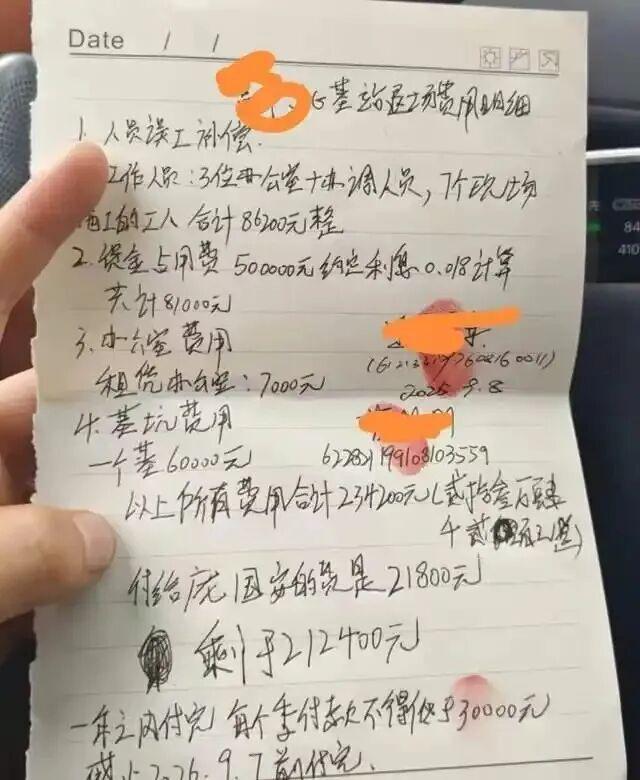 Date / /
G基站退场费用明细
1、人员误工补偿
工作人员:3位办公室+协调人员,7个现场
施工的工人 合计86200元整
2、资金占用费 500000元约定利息0.018计算
共计81000元
3、办公室费用
2025.9.8
租凭办公室:7000元
4、基坑费用
一个基60000元
以上所有费用合计234200元(贰拾叁万肆
付给庞国安的费是21800元
剩于212400元
一年之内付完 每个季付款不得低于30000元
截止2026.9.7前付完.
84
410